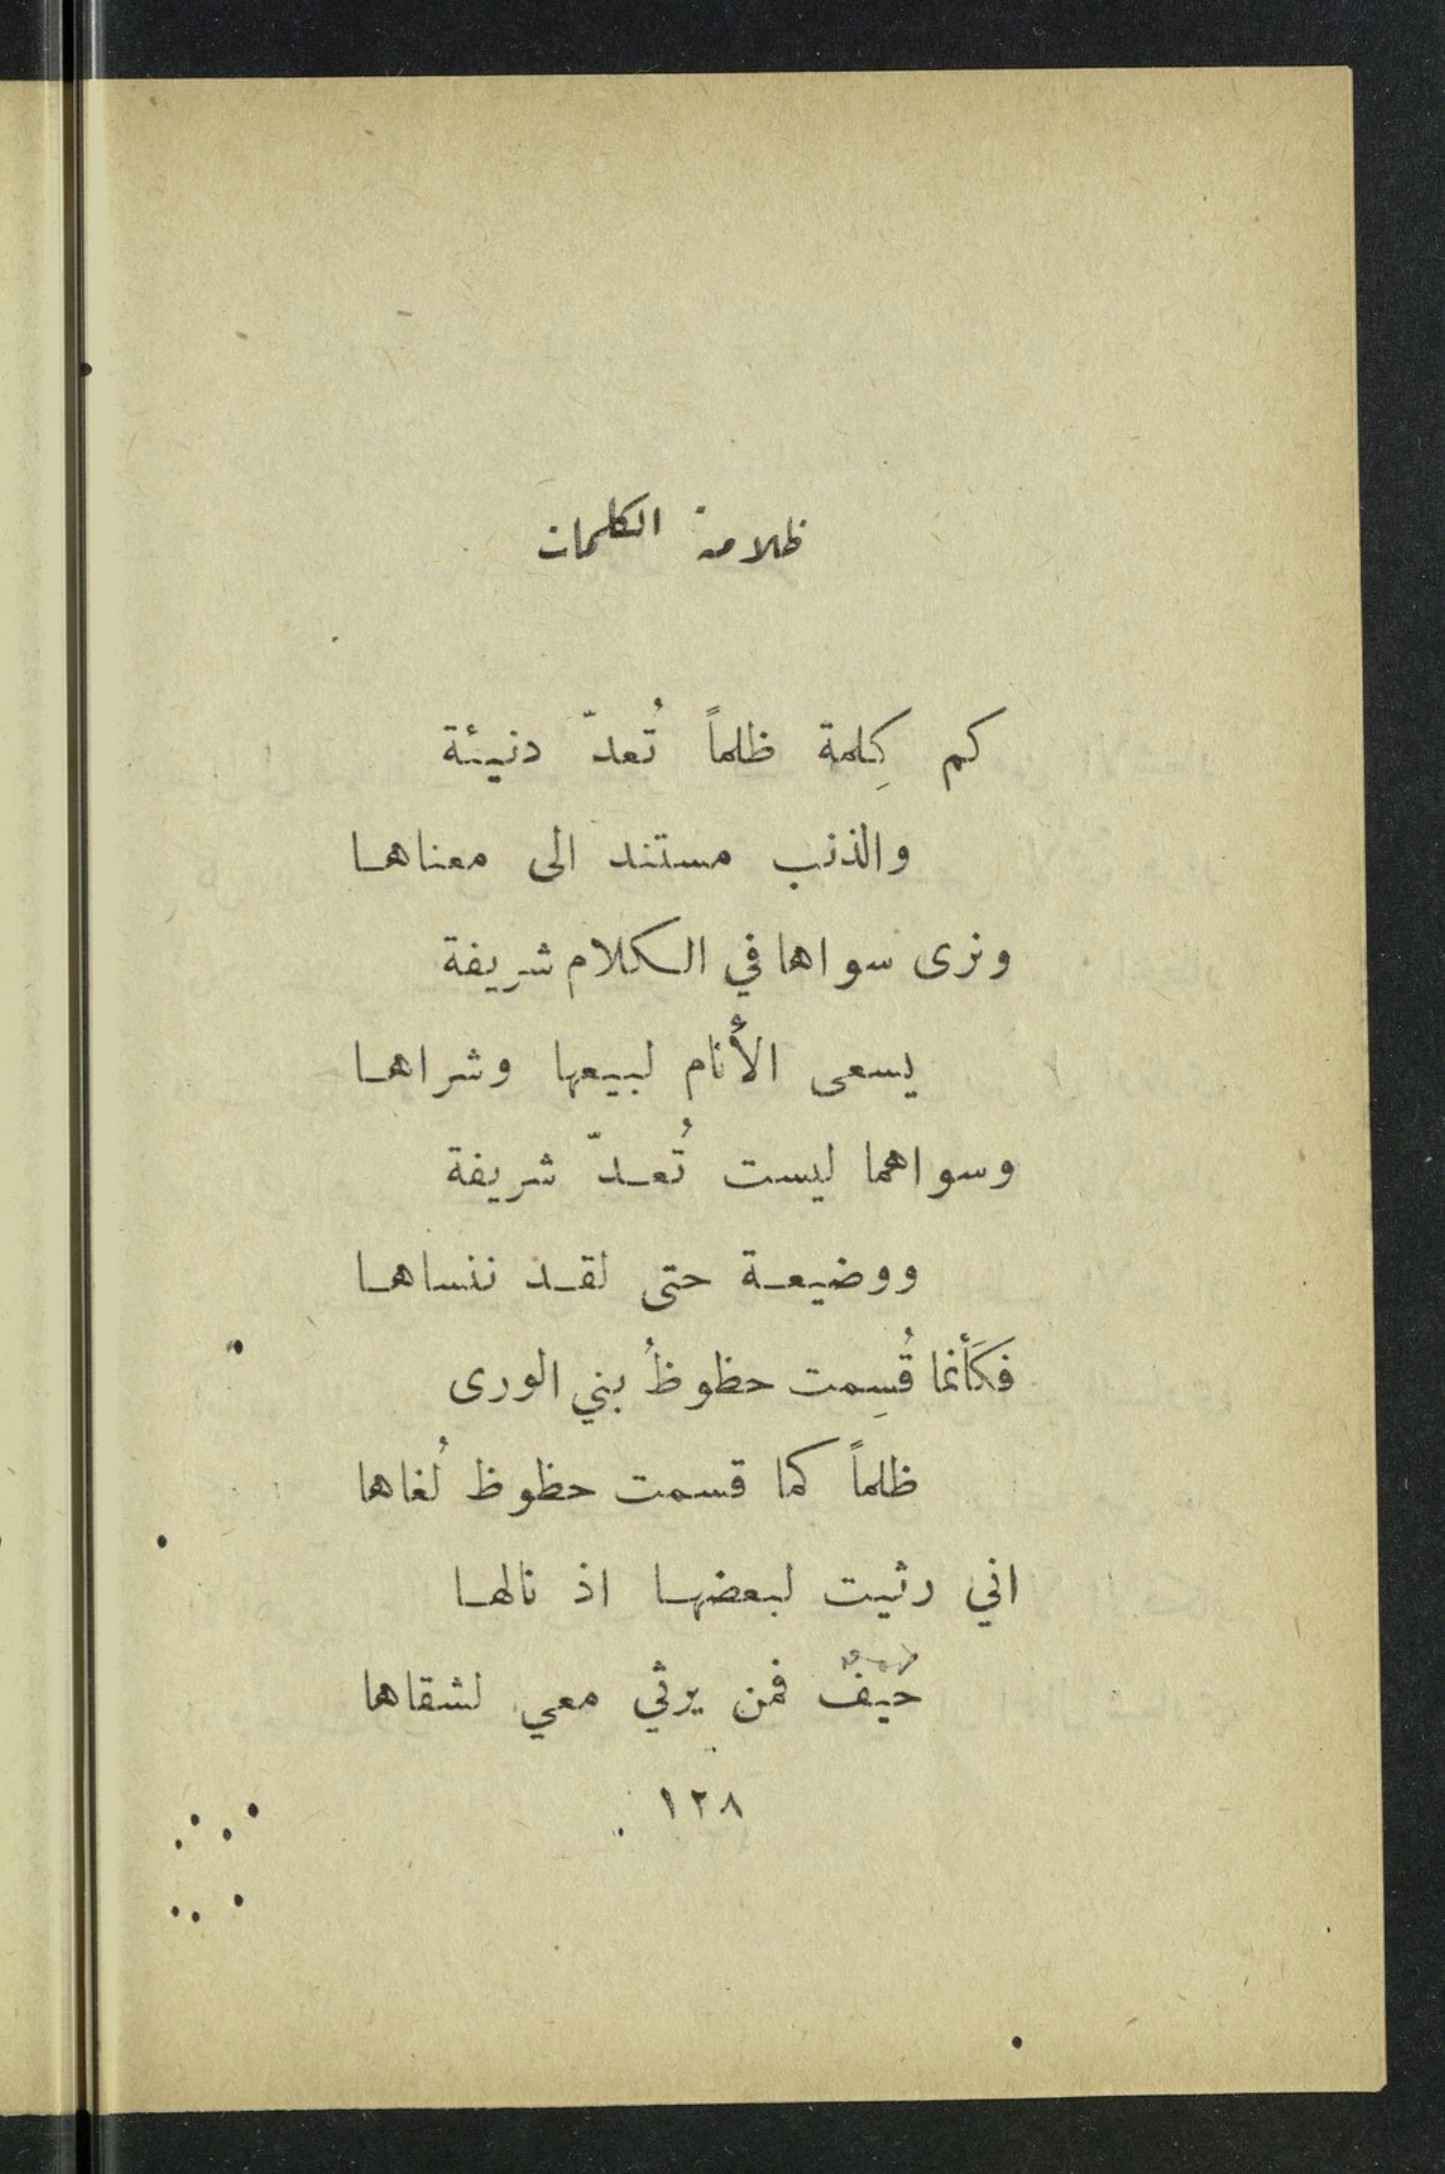 ظلامة الكلمات
كم كِلمة ظلماً تُعدّ دنيئة
والذنب مستند الى معناها
ونرى سواها في الكلام شريفة
يسعى الأنام لبيعها وشراها
وسواهما ليست تُعدّ شريفة
ووضيعة حتى لقد ننساها
فَكَأنما قُسِمت حظوظُ بني الورى
ظلماً كما قسمت حظوظ لُغاها
اني رثيت لبعضها اذ نالها
حيفٌ فمن يرثي معي لشقاها
١٢٨